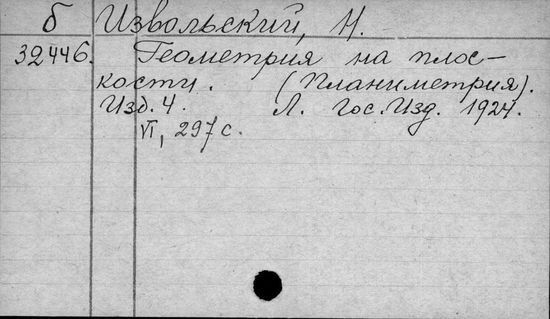 б Извольский, Н.
32446. Геометрия на плос-
кости. (Планиметрия).
Изд. 4. Л. Гос. Изд. 1924.
VI, 297 с.